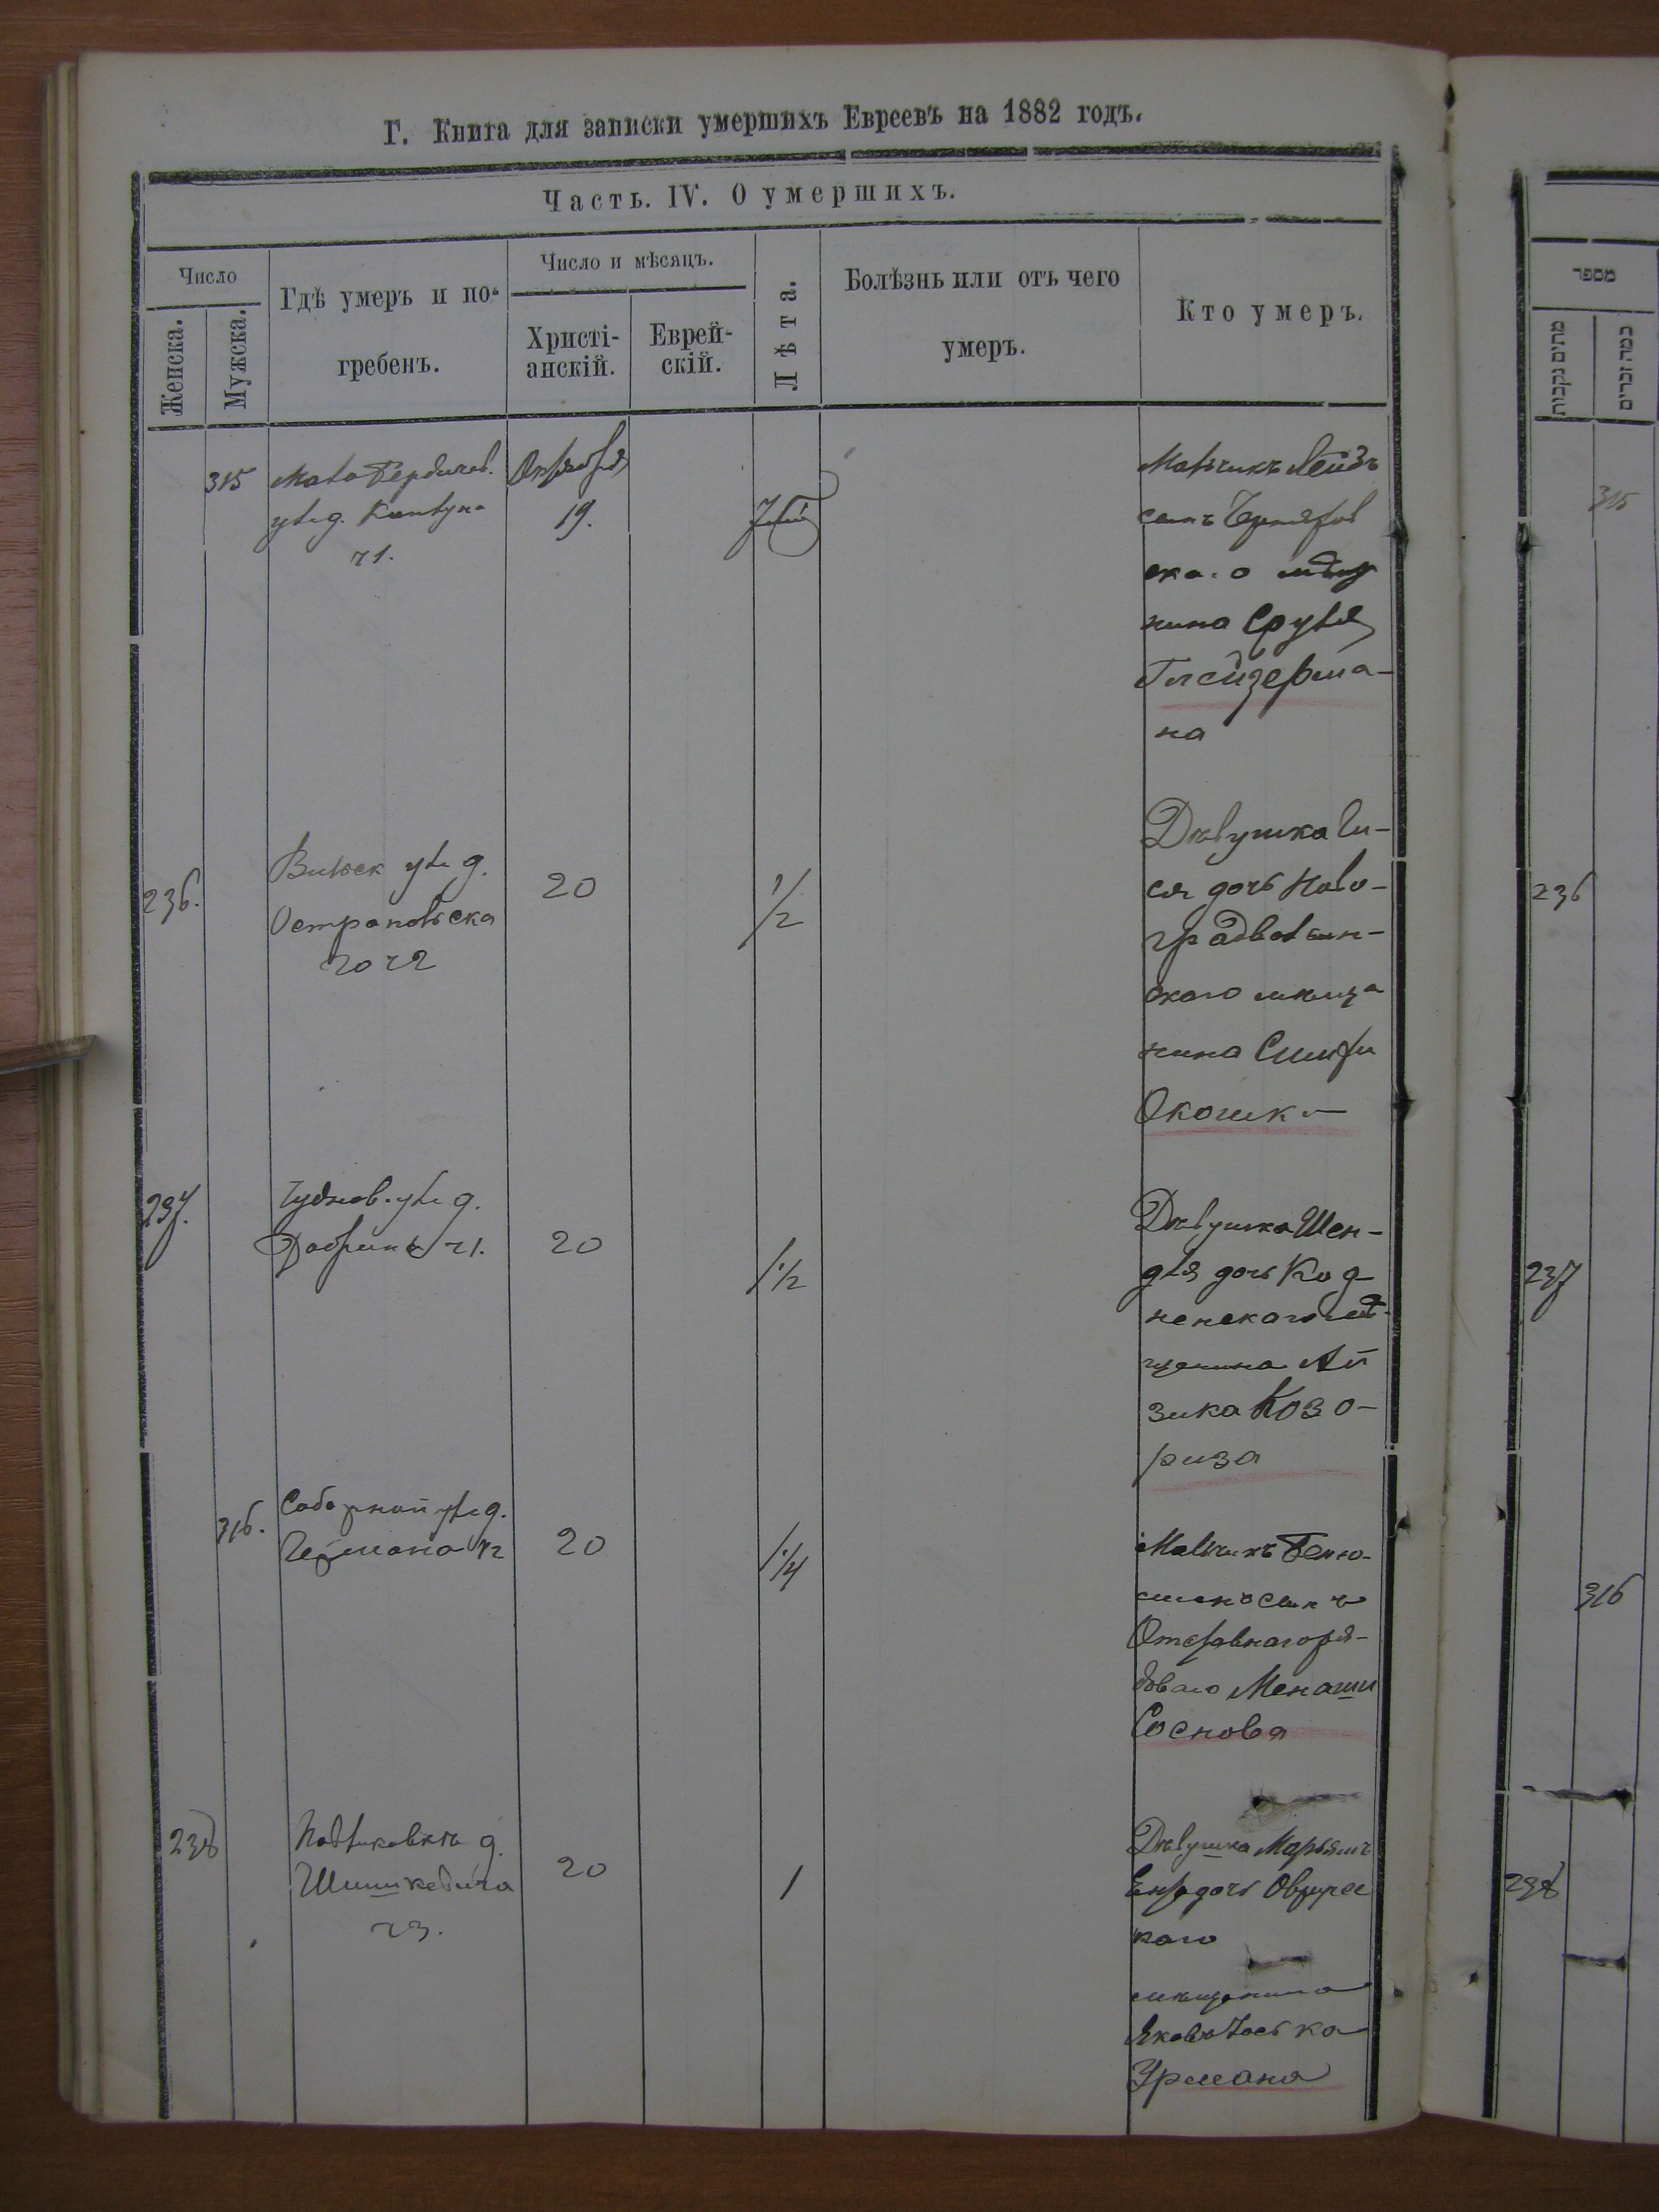 Г. Книга для записки умершихъ Евреевъ на 1882 годъ.
Часть. IV. О умершихъ.
Число
Женска.
Мужска.
Гдѣ умеръ и по-
гребенъ.
Число и мѣсяцъ.
Христі-
анскій.
Еврей-
скій.
Лѣта.
Болѣзнь или отъ чего
умеръ.
Кто умеръ.
315
Мало Бердичев.
ул. д.
ч 1.
Октября
19.
Мальчикъ Лейзъ
сынъ
ска о мѣщ
нина Сруля
Глейзерма-
на
236.
Вильск ул. д.
Островска
го ч 2
20
1/2
Дѣвушка Ги-
ся дочь Ново-
градволын-
скаго мѣща
нина
237.
Чуднов. ул. д.
ч 1.
20
1 1/2
Дѣвушка Шен-
для дочь Код-
ненскаго мѣ-
щанина Ай
зика Козо-
риза
316.
Соборной ул. д.
ч 2
20
1 1/4
Мальчикъ Беню-
минъ сынъ
Отставнаго ря-
доваго Менаши
Соснова
238
Павликовкъ д.
Шишкевича
ч 3.
20
1
Дѣвушка Марьямъ
Ента дочь Овруче
каго
мѣщанина
Яковъ Іоська
Урмана
מספר
מתים נקבות
כמה זכרים
315
236
237
316
238